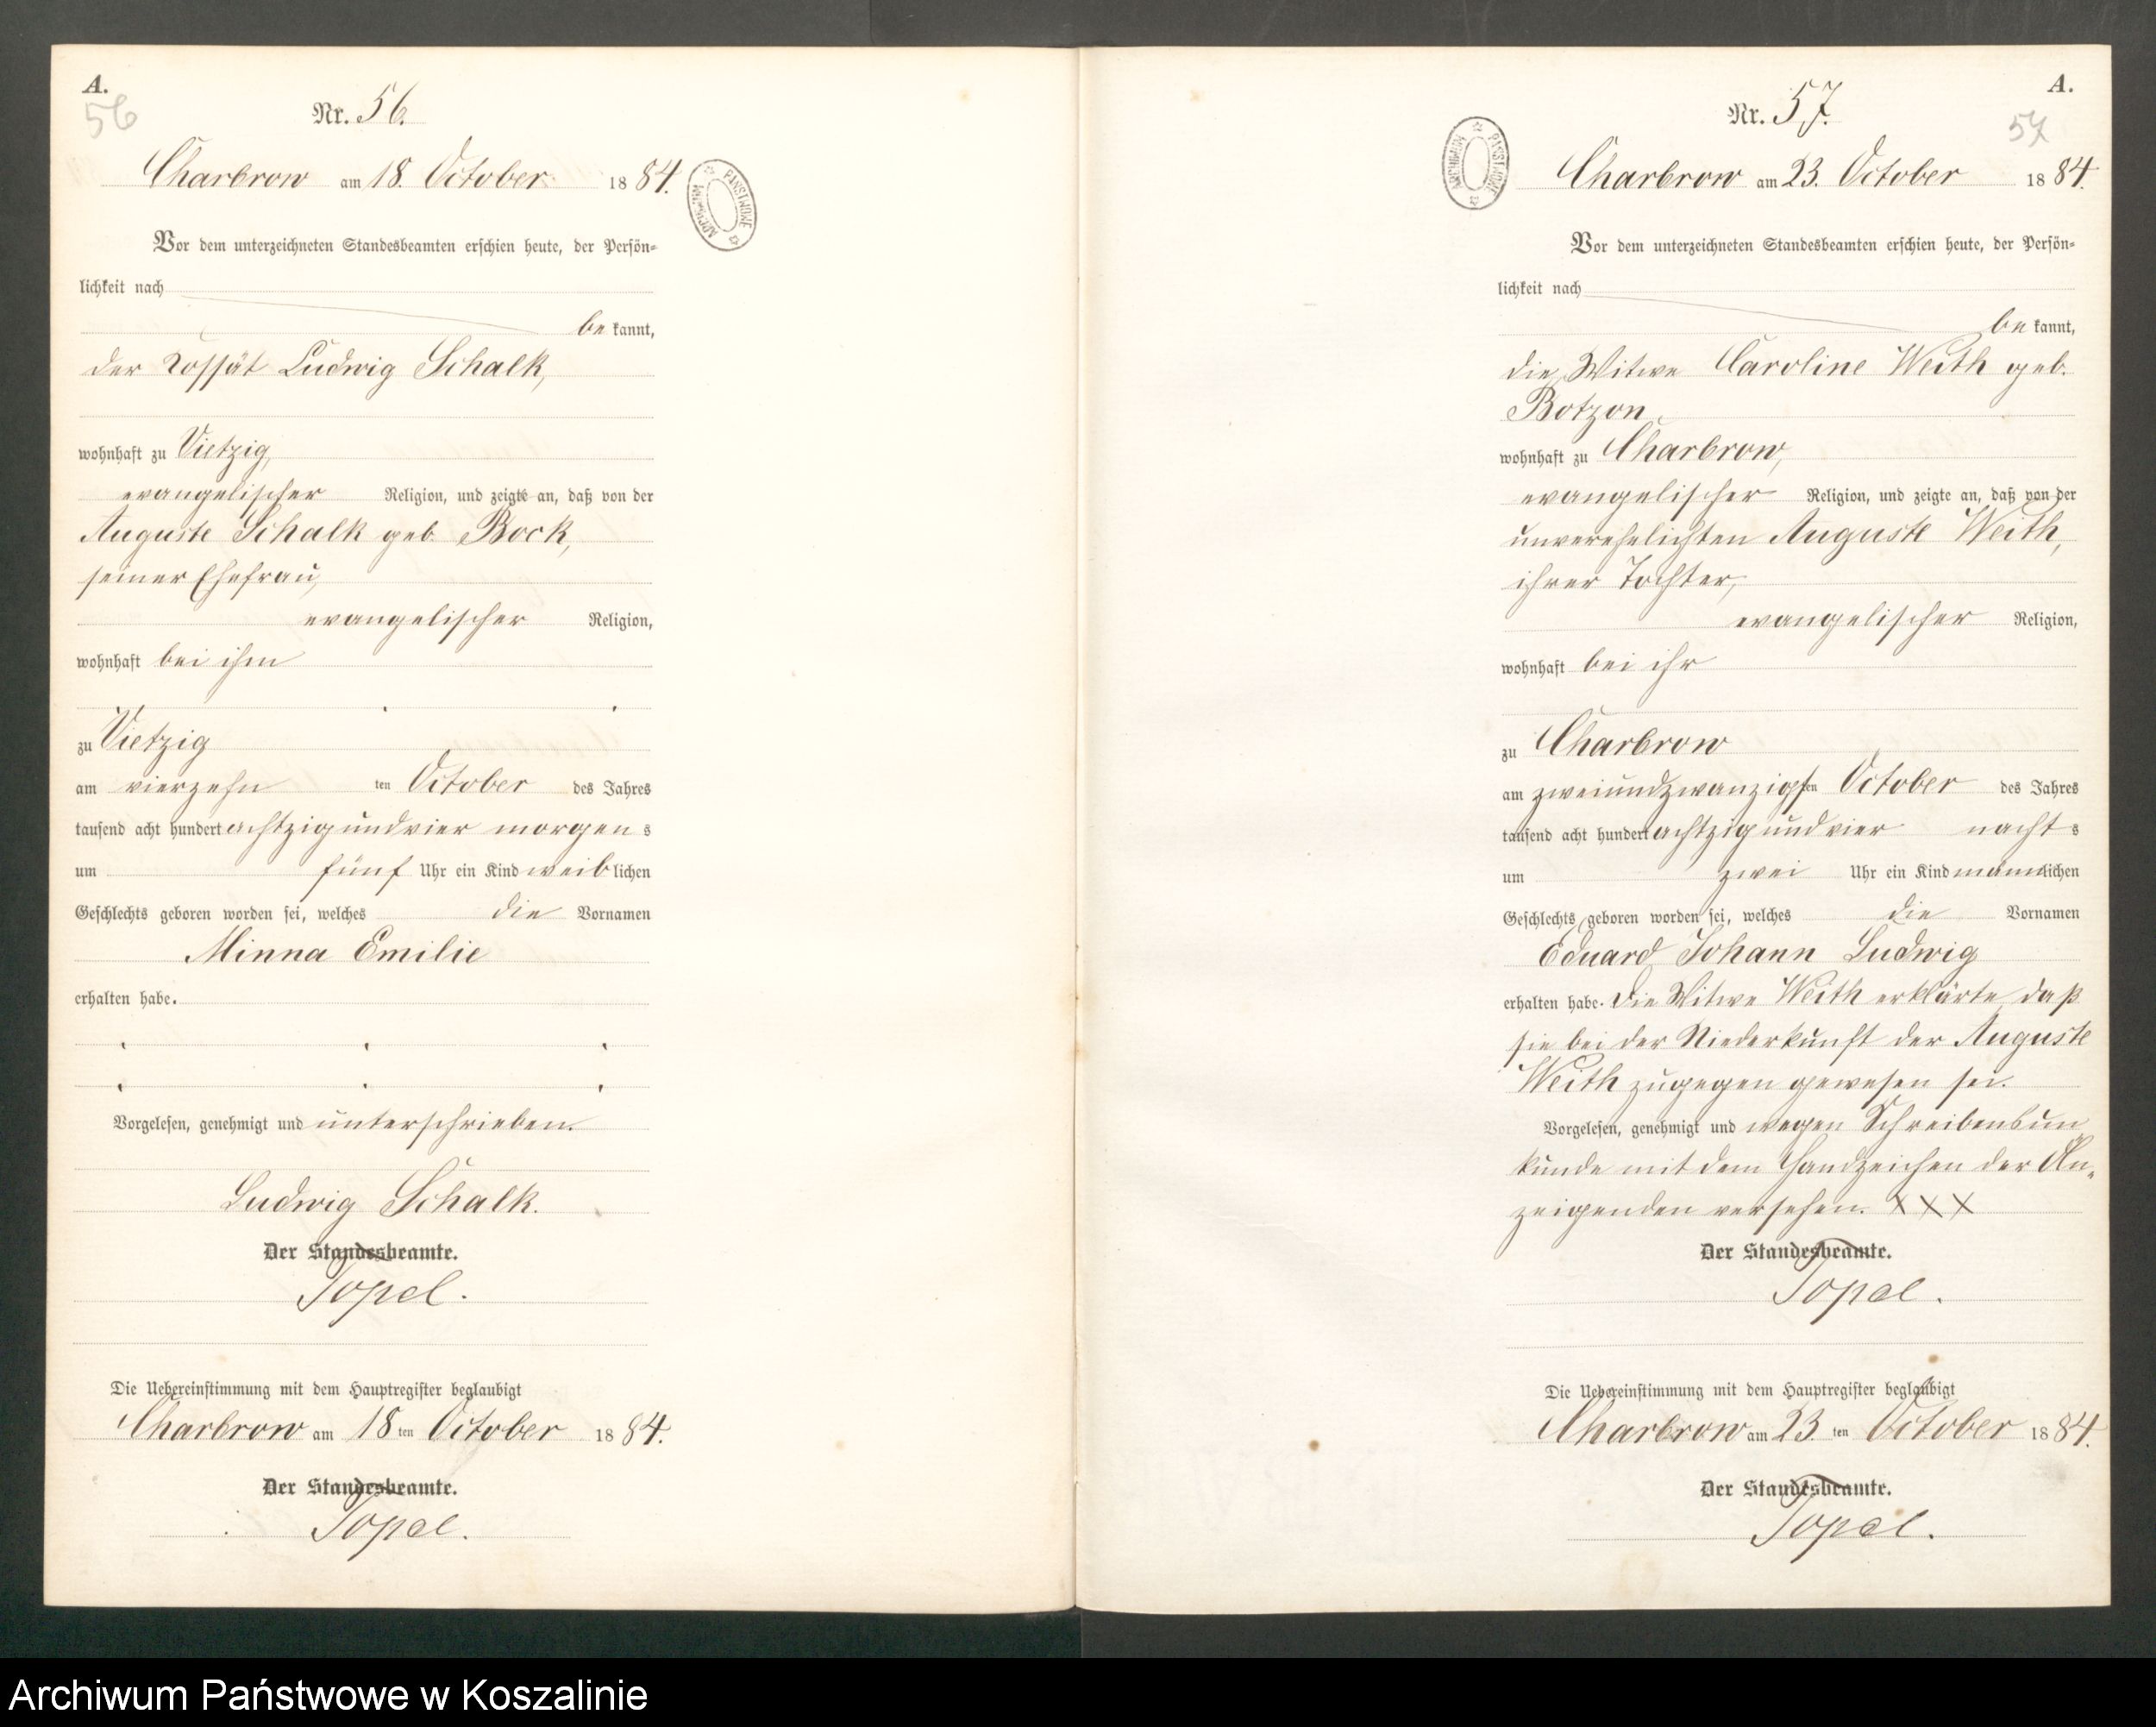 A.
56
Nr. 56.
Charbrow am 18. October 1884.
ARCHIWUM PAŃSTWOWE
Vor dem unterzeichneten Standesbeamten erschien heute, der Persön-
lichkeit nach
be kannt,
der Kossät Ludwig Schalk,
wohnhaft zu Vietzig,
evangelischer Religion, und zeigte an, daß von der
Auguste Schalk geb. Bock,
seiner Ehefrau,
evangelischer Religion,
wohnhaft bei ihm
zu Vietzig
am vierzehn ten October des Jahres
tausend acht hundert achtzig und vier morgen s
um fünf Uhr ein Kind weiblichen
Geschlechts geboren worden sei, welches die Vornamen
Minna Emilie
erhalten habe.
Vorgelesen, genehmigt und unterschrieben.
Ludwig Schalk.
Der Standesbeamte.
Topel.
Die Uebereinstimmung mit dem Hauptregister beglaubigt
Charbrow am 18 ten October 1884.
Der Standesbeamte.
Topel.
A.
57
Nr. 57.
ARCHIWUM PAŃSTWOWE
Charbrow am 23. October 1884.
Vor dem unterzeichneten Standesbeamten erschien heute, der Persön-
lichkeit nach
be kannt,
die Witwe Caroline Weith geb.
Botzon,
wohnhaft zu Charbrow,
evangelischer Religion, und zeigte an, daß von der
unverehelichten Auguste Weith,
ihrer Tochter,
evangelischer Religion,
wohnhaft bei ihr
zu Charbrow
am zweiundzwanzigsten October des Jahres
tausend acht hundert achtzig und vier nacht s
um zwei Uhr ein Kind männlichen
Geschlechts geboren worden sei, welches die Vornamen
Eduard Johann Ludwig
erhalten habe. Die Witwe Weith erklärte, daß
sie bei der Niederkunft der Auguste
Weith zugegen gewesen sei.
Vorgelesen, genehmigt und wegen Schreibensun
kunde mit dem Handzeichen der An-
zeigenden versehen. XXX
Der Standesbeamte.
Topel.
Die Uebereinstimmung mit dem Hauptregister beglaubigt
Charbrow am 23. ten October 1884.
Der Standesbeamte.
Topel.
Archiwum Państwowe w Koszalinie